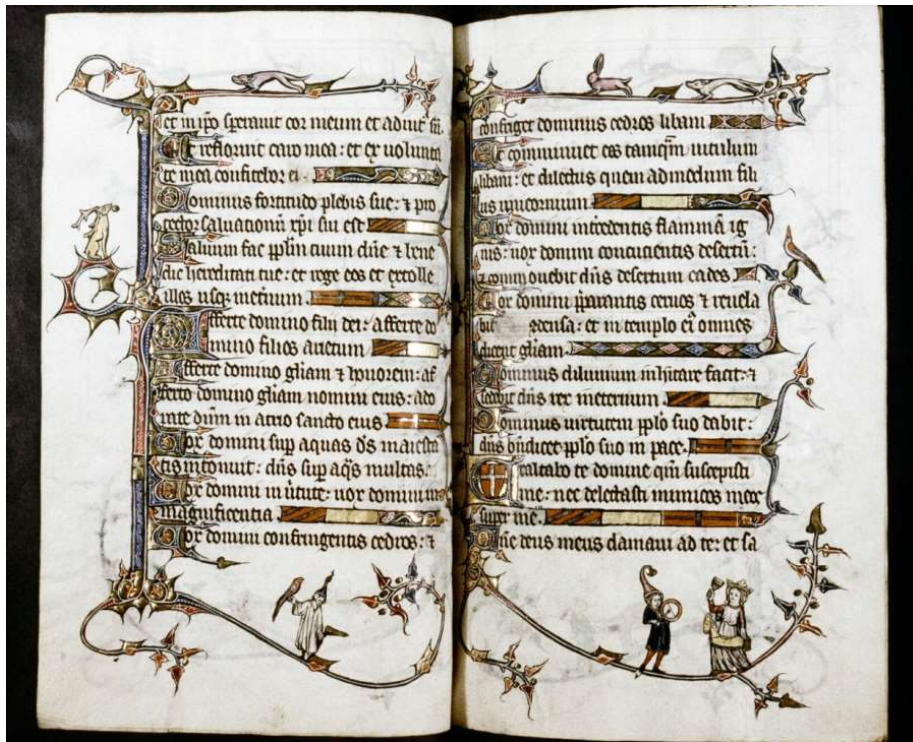 et in ip̄o sperauit cor meum et adiut sū.
Et refloruit caro mea: et ex uolunta
te mea confitebor ei.
Dominus fortitudo plebis sue: ⁊ pro
tector saluationū xp̄i sui est
Saluum fac pp̄lm tuum dn̄e ⁊ bene
dic hereditati tue: et rege eos et extolle
illos usq; meternum.
Afferte domino filii dei: afferte do
mino filios arietum
Afferte domino gl̄iam ⁊ honorem: af
ferte domino gl̄iam nomini eius: ado
rate dn̄m in atrio sancto eius
Uox domini sup aquas ds̄ maiesta
tis intonuit: dn̄s sup aq̄s multas.
Uox domini in ūtute: uox domini in
magnificentia
Uox domini confringentis cedros: ⁊
confriget dominus cedros libani
Et comminuet eos tamqm̄ uitulum
libani: et dilectus quem admodum fili
us unicornium
Uox domini intercedentis flammā ig
nis: uox domini concucientis desertū:
⁊ commouebit dn̄s desertum cades
Uox domini p̄parantis ceruos ⁊ reuela
bit densa: et in templo ei᷒ omnes
dicent gl̄iam.
Dominus diluuium inhitare facit: ⁊
sedebit dn̄s rex meternum
Dominus uirtutem pp̄lo suo dabit:
dn̄s bn̄dicet pp̄lo suo in pace.
Exaltabo te domine qm̄ suscepisti
me: nec delectasti inimicos meos
super me.
Dn̄e deus meus clamaui ad te: et sa